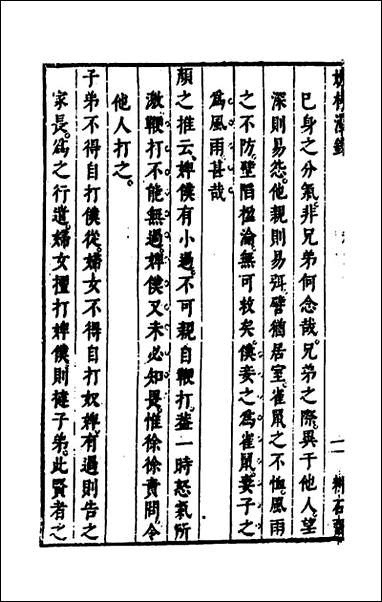 已身之分氣非兄弟何念哉兄弟之際異于他人望
深則易怨他親則易弭譬猶居室雀鼠之不恤風雨
之不防壁陷楹淪無可救矣僕妾之爲雀鼠妻子之
爲風雨甚哉
顏之推云婢僕有小過不可親自鞭打蓋一時怒氣所
激鞭打不能無過婢僕又未必知畏惟徐徐責問令
他人打之
子弟不得自打僕從婦女不得自打奴婢有過則告之
家長爲之行遣婦女擅打婢僕則撻子弟此賢者之